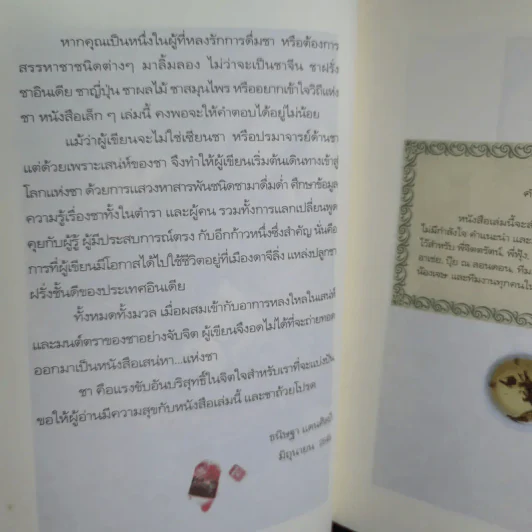 หากคุณเป็นหนึ่งในผู้ที่หลงรักการดื่มชา หรือต้องการ
สรรหาชาชนิดต่างๆ มาลิ้มลอง ไม่ว่าจะเป็นชาจีน ชาฝรั่ง
ชาอินเดีย ชาญี่ปุ่น ชาผลไม้ ชาสมุนไพร หรืออยากเข้าใจวิถีแห่ง
ชา หนังสือเล็ก ๆ เล่มนี้ คงพอจะให้คำตอบได้อยู่ไม่น้อย
แม้ว่าผู้เขียนจะไม่ใช่เซียนชา หรือปรมาจารย์ด้านชา
แต่ด้วยเพราะเสน่ห์ของชา จึงทำให้ผู้เขียนเริ่มต้นเดินทางเข้าสู่
โลกแห่งชา ด้วยการแสวงหาสารพันชนิดชามาดื่มด่ำ ศึกษาข้อมูล
ความรู้เรื่องชาทั้งในตำรา และผู้คน รวมทั้งการแลกเปลี่ยนพูด
คุยกับผู้รู้ ผู้มีประสบการณ์ตรง กับอีกก้าวหนึ่งซึ่งสำคัญ นั่นคือ
การที่ผู้เขียนมีโอกาสได้ไปใช้ชีวิตอยู่ที่เมืองดาจีลิ่ง แหล่งปลูกชา
ฝรั่งชั้นดีของประเทศอินเดีย
ทั้งหมดทั้งมวล เมื่อผสมเข้ากับอาการหลงใหลในเสน่ห์
และมนต์ตราของชาอย่างจับจิต ผู้เขียนจึงอดไม่ได้ที่จะถ่ายทอด
ออกมาเป็นหนังสือเสน่หา...แห่งชา
ชา คือแรงขับอันบริสุทธิ์ในจิตใจสำหรับเราที่จะแบ่งปัน
ขอให้ผู้อ่านมีความสุขกับหนังสือเล่มนี้ และชาถ้วยโปรด
ชนิษฐา
มิถุนายน
หนังสือเล่มนี้จะ
ไม่มีกำลังใจ คำแนะนำ และ
ไว้สำหรับ
และทีมงานทุกคน